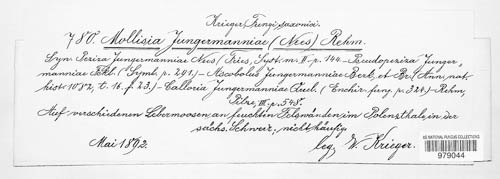 Krieger, Fungi saxonici.
780. Mollisia Jungermanniae (Nees) Rehm.
Syn. Peziza Jungermanniae Nees (Fries, Syst. m. II. p. 144. – Pseudopeziza Junger,
manniae Fckl. (Symb. p. 291.) – Ascobolus Jungermanniae Berk. et Br. (Ann. nat.
hist. 1082, t. 16. f. 23.) – Calloria Jungermanniae Quel. (Enchir. fung. p. 324.) – Rehm,
Pilze, III. p. 548.
Auf verschiedenen Lebermoosen an feuchten Felswänden im Polenzthale in der
sächs. Schweiz, nicht häufig.
Mai 1892. leg. W. Krieger.
US NATIONAL FUNGUS COLLECTIONS
979044